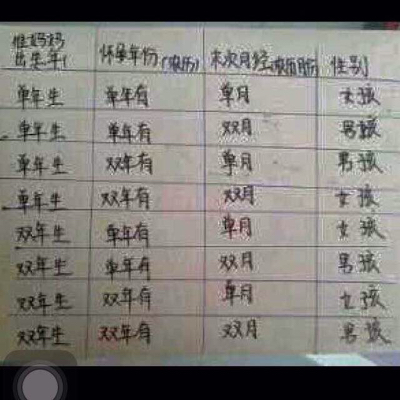 准妈妈
出生年 怀孕年份(农历) 末次月经 性别
单年生 单年有 单月 女孩
单年生 单年有 双月 男孩
单年生 双年有 单月 男孩
单年生 双年有 双月 女孩
双年生 单年有 单月 女孩
双年生 单年有 双月 男孩
双年生 双年有 单月 女孩
双年生 双年有 双月 男孩